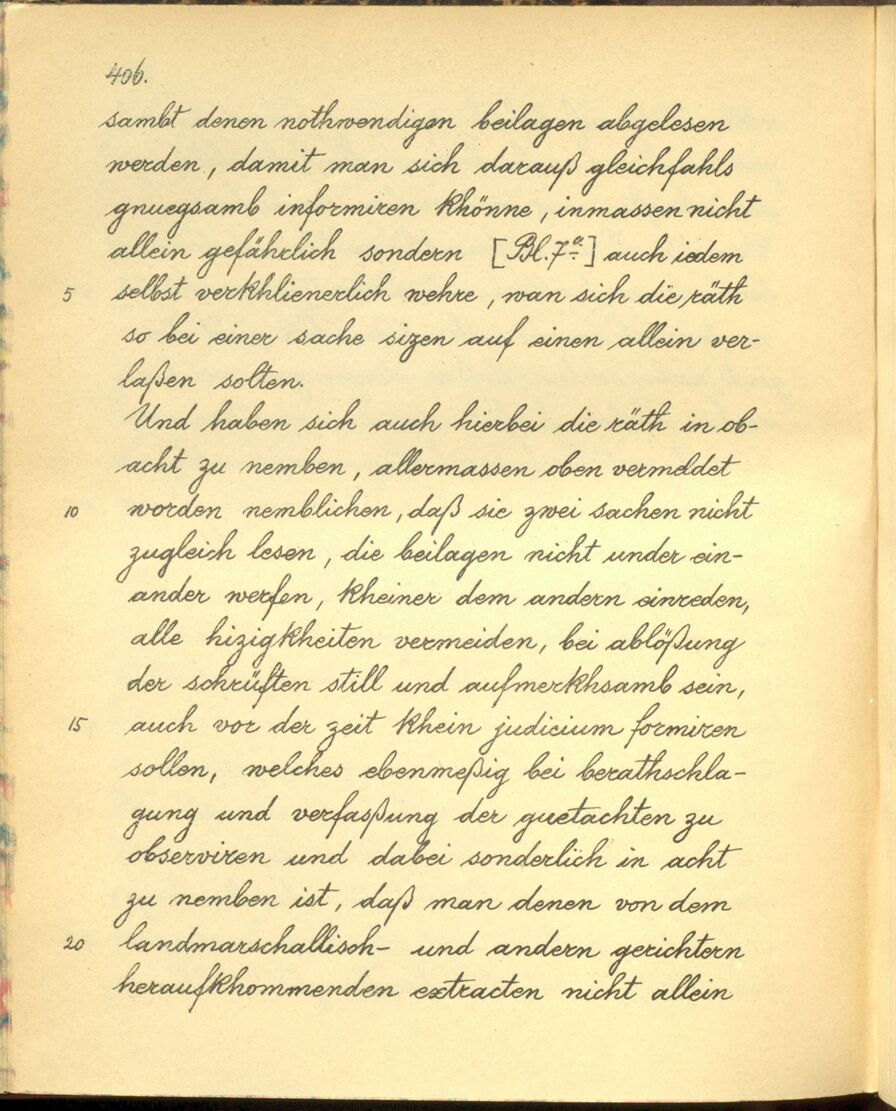 406.
sambt denen nothwendigen beilagen abgelesen
werden, damit man sich darauß gleichfahls
gnuegsamb informiren khönne, inmassen nicht
allein gefährlich sondern [Bl. 7a.] auch iedem
5 selbst verkhlienerlich wehre, wan sich die räth
so bei einer sache sizen auf einen allein ver-
laßen solten.
Und haben sich auch hierbei die räth in ob-
acht zu nemben, allermassen oben vermeldet
10 worden nemblichen, daß sie zwei sachen nicht
zugleich lesen, die beilagen nicht under ein-
ander werfen, kheiner dem andern einreden,
alle hizigkheiten vermeiden, bei ablößung
der schrüften still und aufmerkhsamb sein,
15 auch vor der zeit khein judicium formiren
sollen, welches ebenmeßig bei berathschla-
gung und verfasßung der guetachten zu
observiren und dabei sonderlich in acht
zu nemben ist, daß man denen von dem
20 landmarschallisch- und andern gerichtern
heraufkhommenden extracten nicht allein